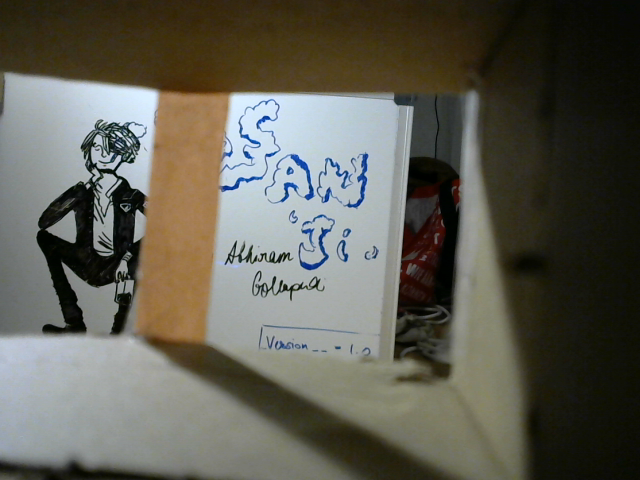 SAN
'Ji.
Abhiram
Gollapudi
Version__ = 1.0